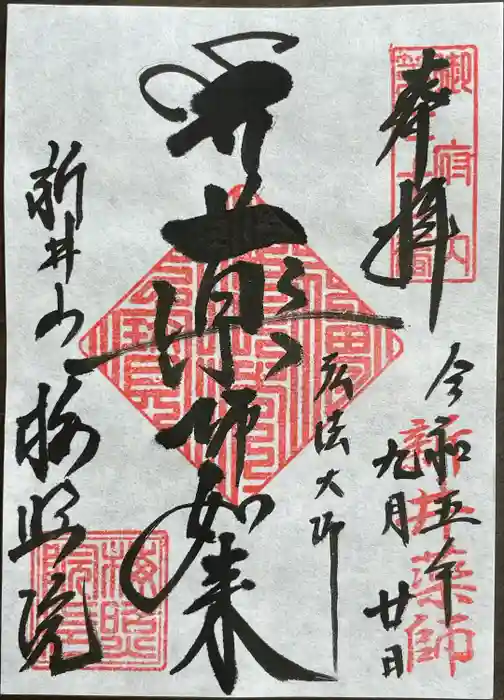 奉拝
令和五年
九月廿日
新井薬師
弘法大師
薬師如来
新井山
梅照院